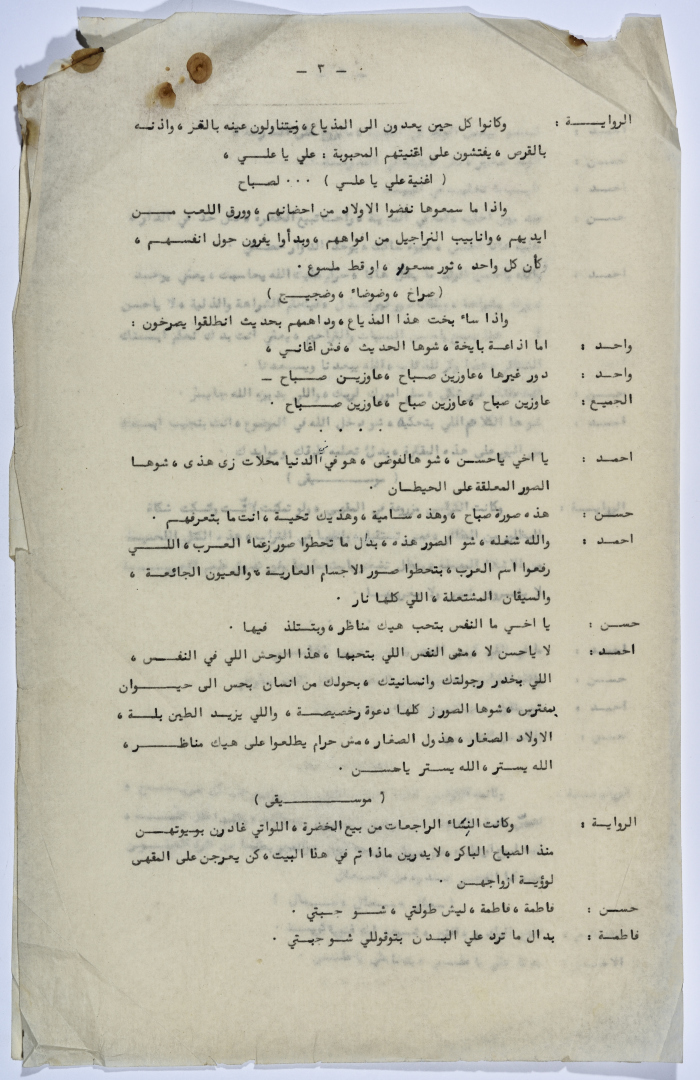 - ٣ -
الروايـــة : وكانوا كل حين يعدون الى المذياع ، فيتناولون عينه بالغز ، واذنـه
بالقرص ، يفتشون على اغنيتهم المحبوبة : علي يا علـــي ،
( اغنية علي يا علــي ) ٠٠٠ لصباح
واذا ما سمعوها نفضوا الاولاد من احضانهم ، وورق اللعب مـــن
ايديهم ، وانابيب النراجيل من افواههم ، وبدأوا يفرون حول انفسهـم ،
وكأن كل واحد ، ثور مسعور ، او قط ملسوع ٠
( صراخ ، وضوضاء ، وضجيـــج )
واذا ساء بخت هذا المذياع ، وداهمهم بحديث انطلقوا يصرخون :
واحـد : اما اذاعـة بايخة ، شوها الحديث ، فش اغانـي ،
واحـد : دور غيرها ، عاوزين صباح ، عاوزيـن صبـاح ـ
الجميع : عاوزين صباح ، عاوزين صباح ، عاوزين صـــباح ٠
٠ ٠ ٠ ٠
احمـد : يا اخي ياحســن ، شو هالفوضى ، هو في الدنيا محلات زى هذى ، شوها
الصور المعلقة على الحيطـان ٠
حسـن : هذه صورة صباح ، وهذه ســامية ، وهذيك تحيـة ، انت ما بتعرفهم ٠
احمـد : والله شغله ، شو الصور هذه ، بدال ما تحطوا صور زعماء العـرب ، اللـــي
رفعوا اسم العرب ، بتحطوا صـور الاجسام العاريـة ، والعيون الجائعـة ،
والسيقان المشتعلة ، اللي كلهـا نار ٠
حسـن : يا اخـي ما النفس بتحب هيك مناظر ، وبتستلذ فيها ٠
احمد : لا ياحسن لا ، مش النفس اللي بتحبها ، هذا الوحش اللي في النفـس ،
اللي بخدر رجولتك وانسانيتك ، بحولك من انسان بحس الى حيـــوان
بفترس ، شوها الصور ز كلهـا دعوة رخصيصـة ، واللي يزيـد الطين بلـة ،
الاولاد الصغـار ، هذول الصغار ، مش حرام يطلعوا على هيك مناظـــر ،
الله يســتر ، الله يستر ياحســـن ٠
( موســــــيقى )
الروايـة : وكانت النساء الراجعات من بيع الخضرة ، اللواتي غادرن بويوتهـــن
منذ الصباح الباكر ، لا يدرين ماذا تم في هذا البيت ، كن يعرجن على المقهى
لرؤيـة ازواجهــن ٠
حسن : فاطمة ، فاطمة ، ليش طولتي ، شـــو جـبتي ٠
فاطمـة : بدال ما ترد علي البـدن بتوقوللي شـو جبـتي ٠